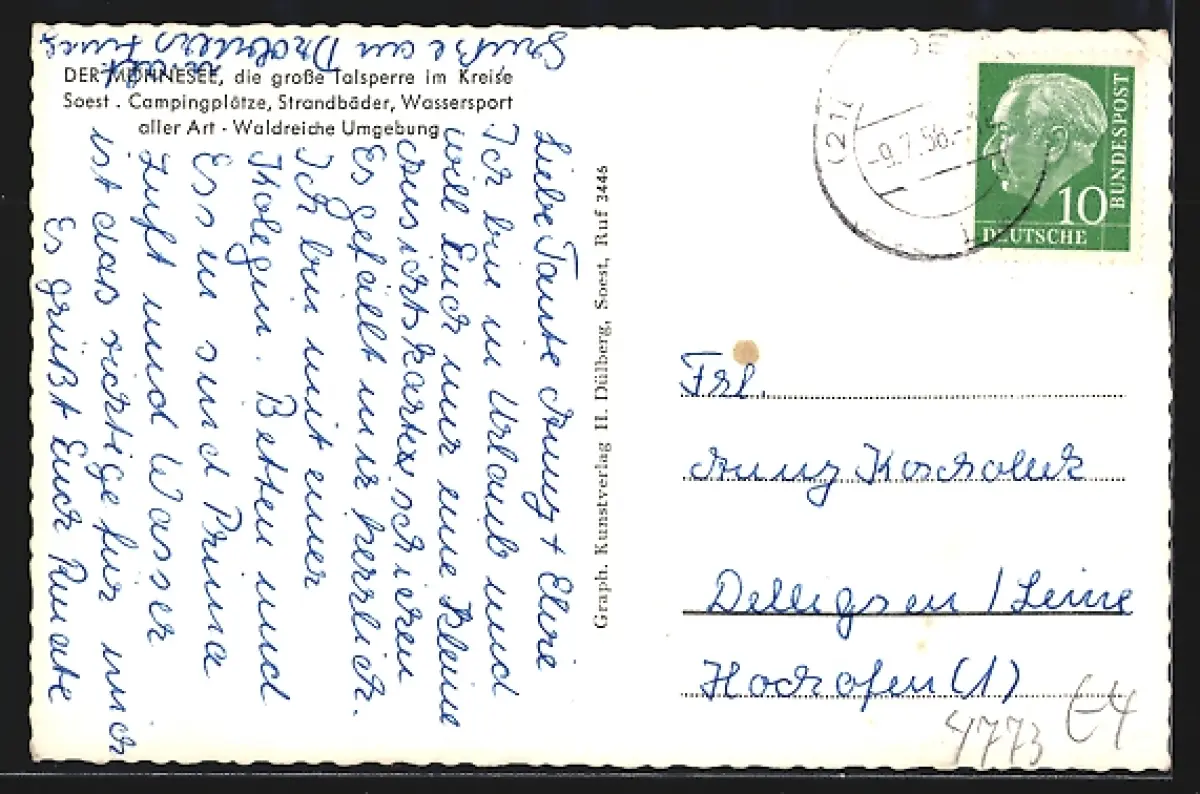 DER MÖHNESEE, die große Talsperre im Kreise
Soest . Campingplätze, Strandbäder, Wassersport
aller Art · Waldreiche Umgebung
Liebe Tante Anny + Eline
Ich bin in Urlaub und
will Euch nur eine kleine
Ansichtskarte schicken
Es gefällt mir herrlich.
Ich bin mit einer
Kolegin. Betten und
Essen sind Prima
Luft und Wasser
ist das richtige für mich
Es grüßt Euch Renate
Grüße an
Graph. Kunstverlag H. Dülberg, Soest, Ruf 3446
(21
-9.7.56.-
10
BUNDESPOST
DEUTSCHE
Frl.
Anny
Delligsen / Leine
Hochofen (1)
4773